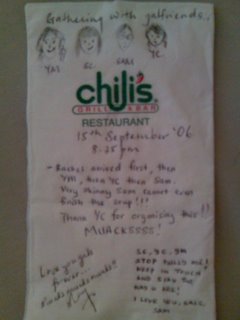 Gathering with galfriends!
YM SC SAM YC
chili's
GRILL & BAR
RESTAURANT
15th September '06
8.25 pm
- Rachel arrived first, then
YM, then YC then Sam.
Very skinny Sam cannot even
finish the soup!!!
Thank YC for organising this!!
MUACKSSSS!
Love you gals
STOP
KEEP IN TOUCH
AND STAY THE
WAY U ARE!
I LOVE YOU GALS
SAM